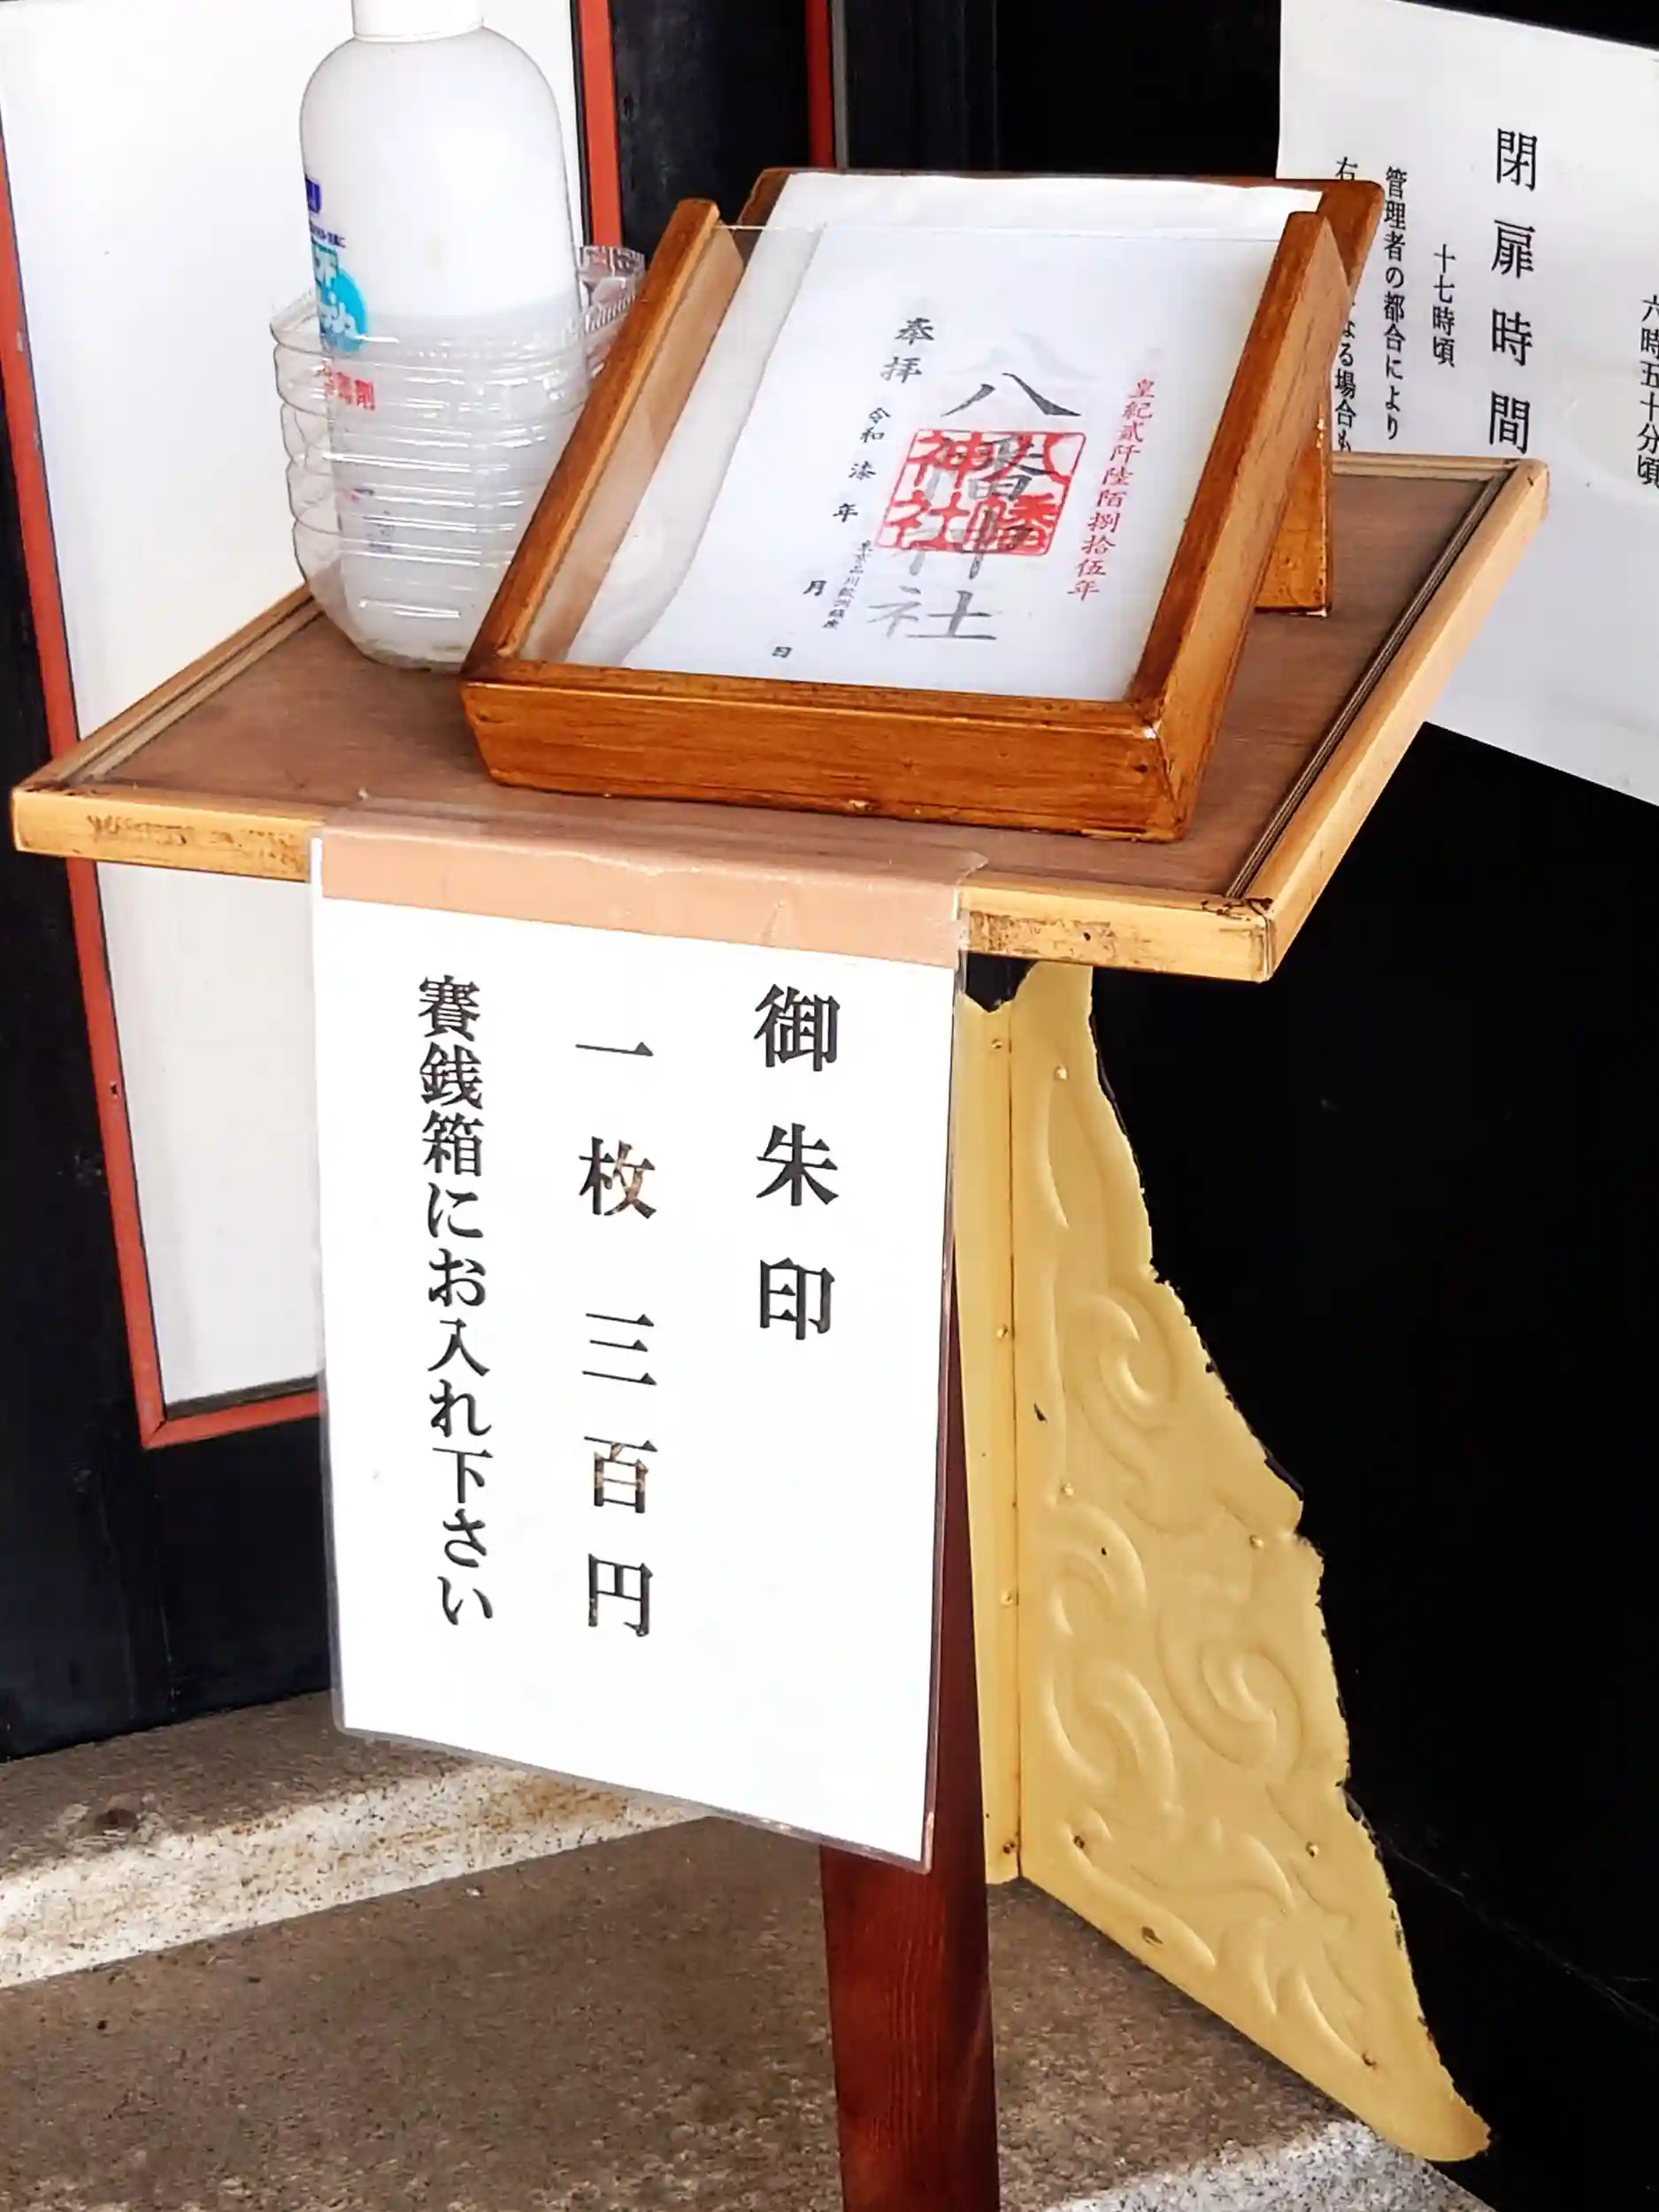 御朱印
一枚 三百円
賽銭箱にお入れ下さい
皇紀貳阡陸陌捌拾伍年
八幡神社
八幡
神社
奉拝
令和漆年 月 日
六時五十分頃
閉扉時間
十七時頃
管理者の都合により
右
なる場合も